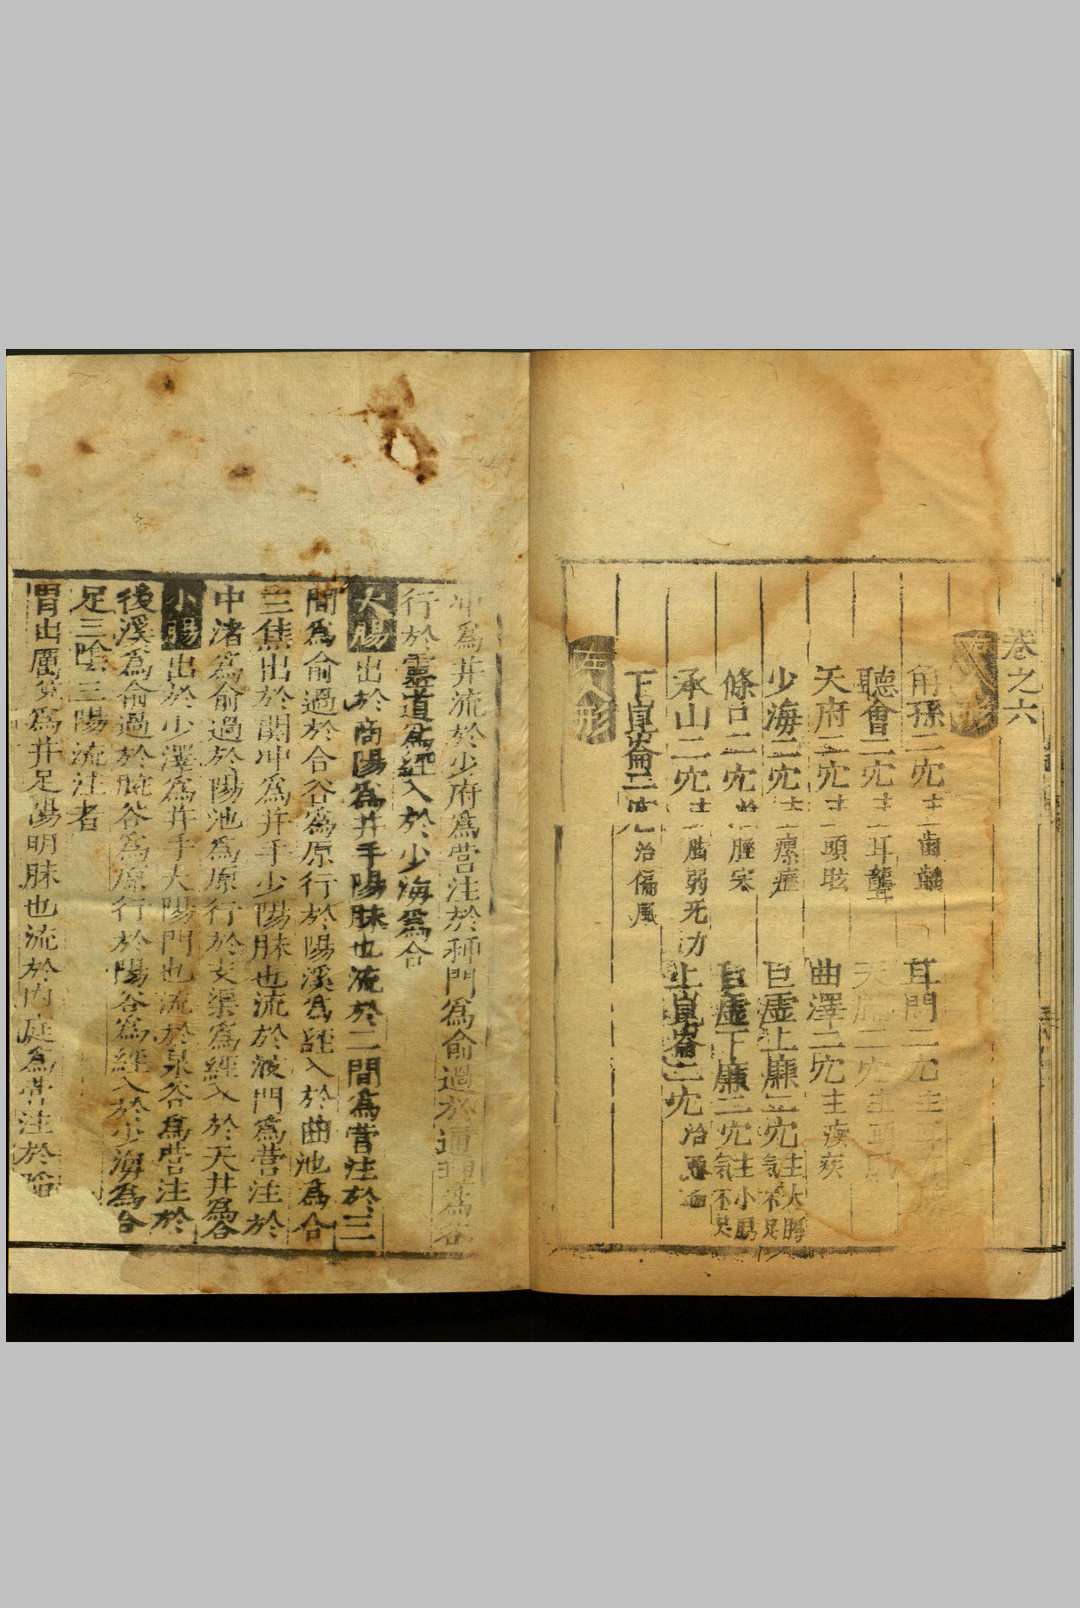 卷之六
角孫二穴主齒齲
耳門二穴主
聽會二穴主耳聾
天二穴主
天府二穴主頭眩
曲澤二穴主痰疾
少海二穴主瘰癧
巨虛上廉二穴主大腸氣不足
條口二穴主脛寒
巨虛下廉二穴主小腸氣不足
承山二穴主腨弱无力
上崑崙二穴治
下崑崙二穴治偏風
形
冲為井流於少府為營注於神門為俞過於通里為
行於靈道為經入於少海為合
大腸出於商陽為井手陽脉也流於二間為營注於三
間為俞過於合谷為原行於陽溪為經入於曲池為合
三焦出於關冲為井手少陽脉也流於液門為營注於
中渚為俞過於陽池為原行於支渠為經入於天井為合
小腸出於少澤為井手大陽門也流於泉谷為營注於
後溪為俞過於腕谷為原行於陽谷為經入於少海為合
足三陰三陽流注者
胃出厲兌為井足陽明脉也流於內庭為營注於陷